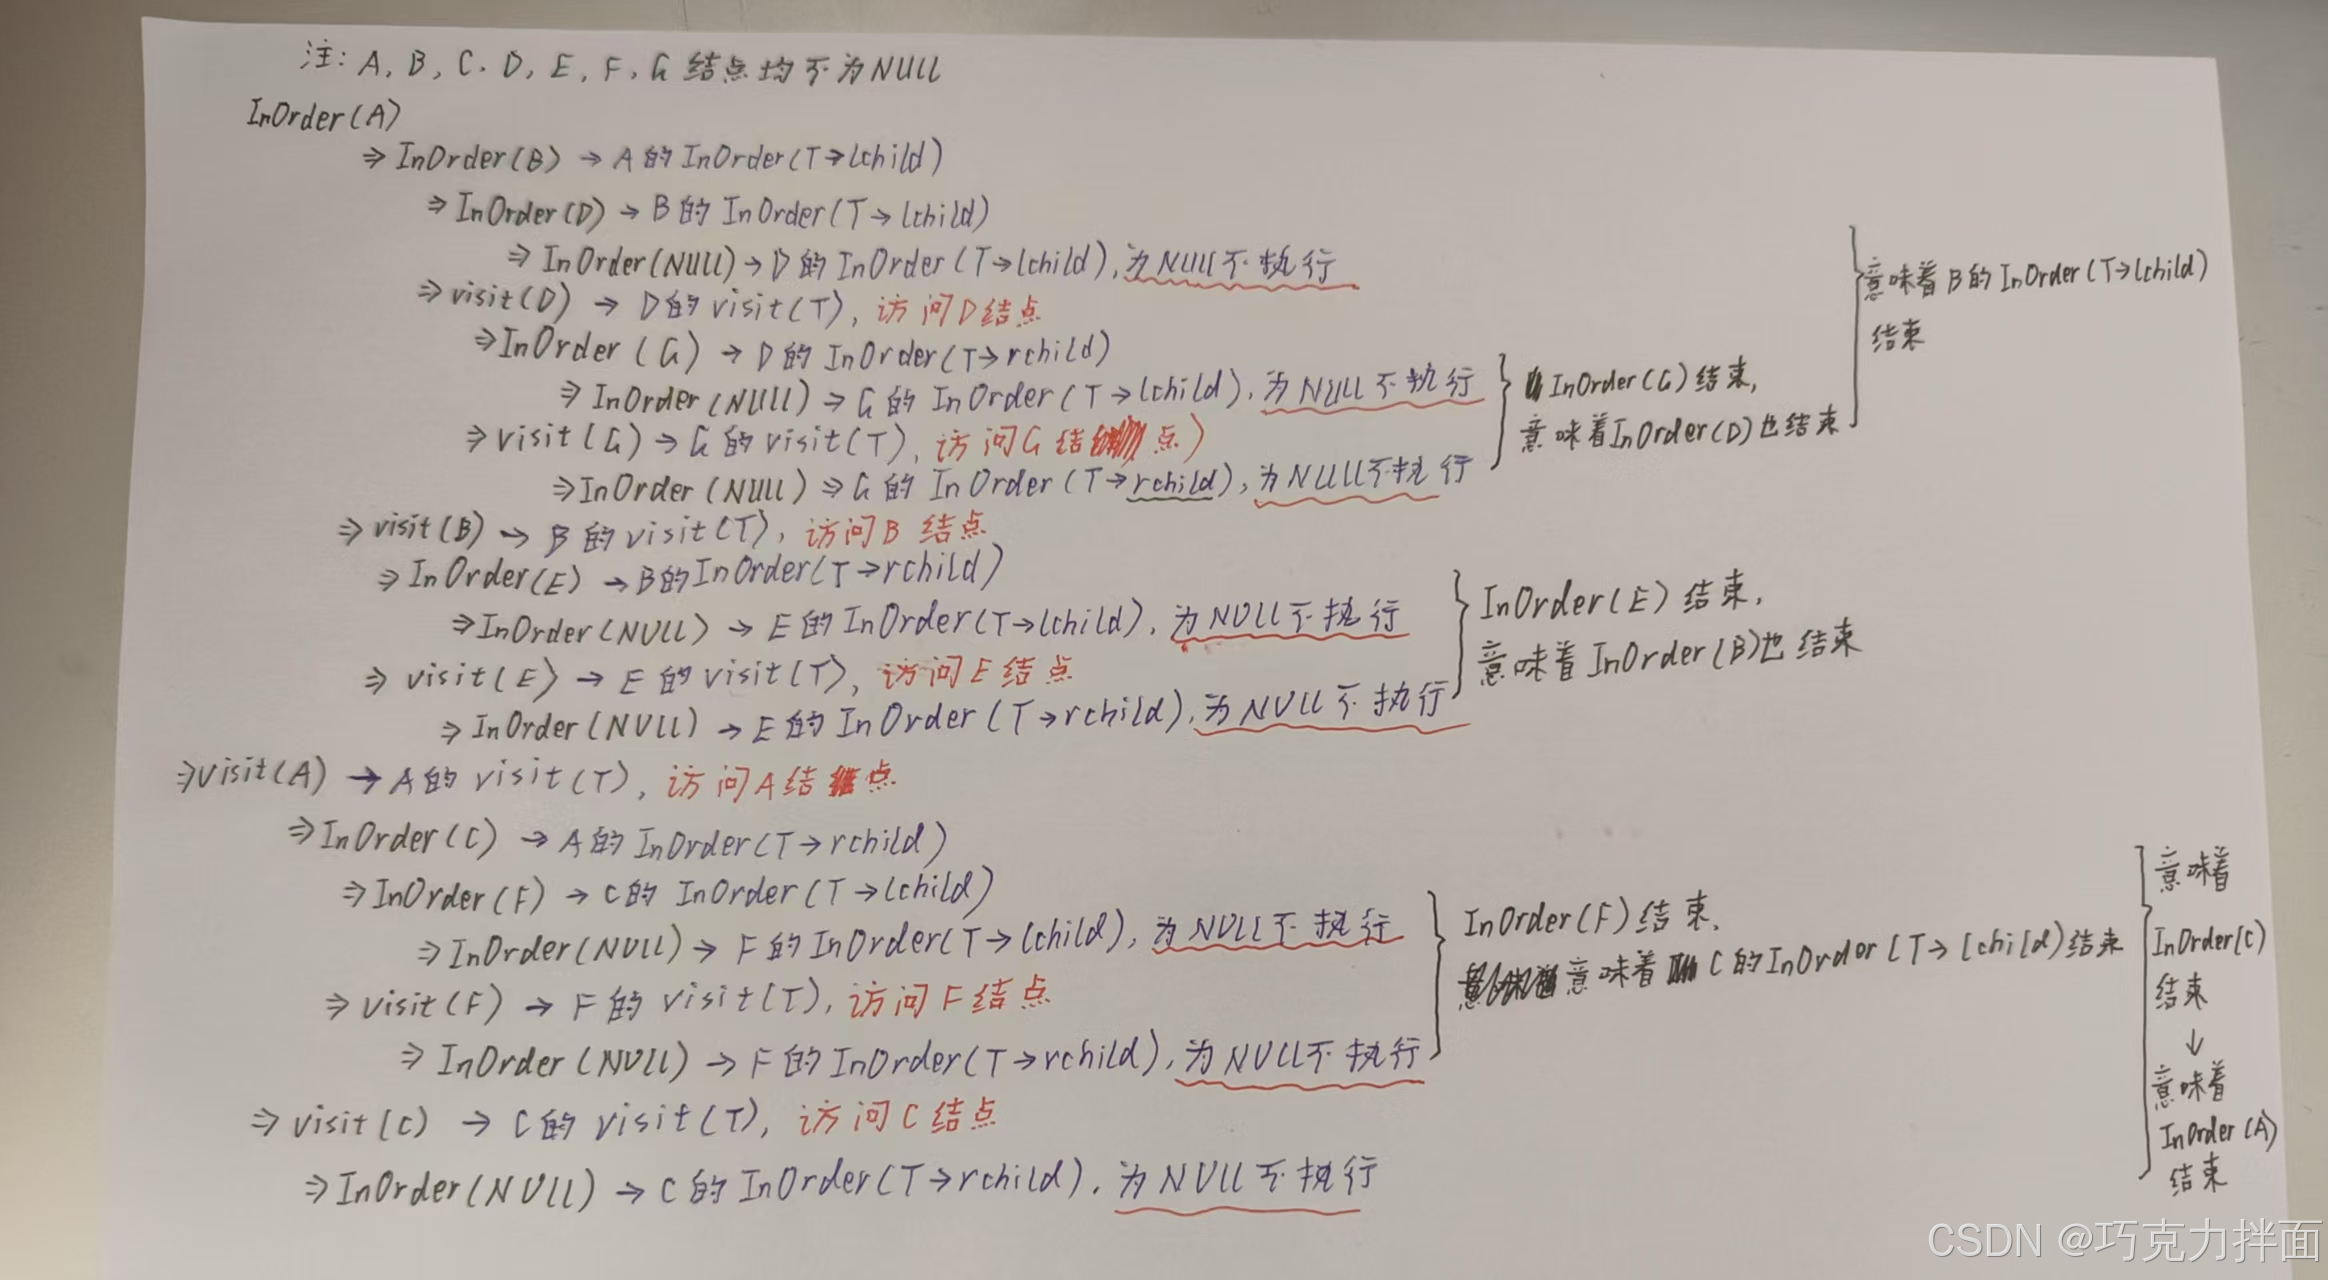 注: A, B, C, D, E, F, G 结点均不为NULL
InOrder(A)
⇒ InOrder(B) → A的 InOrder(T→lchild)
⇒ InOrder(D) → B的 InOrder(T→lchild)
⇒ InOrder(NULL) → D的 InOrder(T→lchild), 为NULL不执行
⇒ visit(D) → D的 visit(T), 访问D结点
⇒ InOrder(G) → D的 InOrder(T→rchild)
⇒ InOrder(NULL) ⇒ G的 InOrder(T→lchild), 为NULL不执行
⇒ visit(G) → G的 visit(T), 访问G结点)
⇒ InOrder(NULL) ⇒ G的 InOrder(T→rchild), 为NULL不执行
InOrder(G)结束,
意味着InOrder(D)也结束
意味着B的InOrder(T→lchild)
结束
⇒ visit(B) → B的 visit(T), 访问B结点
⇒ InOrder(E) → B的InOrder(T→rchild)
⇒ InOrder(NULL) → E的InOrder(T→lchild), 为NULL不执行
⇒ visit(E) → E的 visit(T), 访问E结点
⇒ InOrder(NULL) → E的InOrder(T→rchild), 为NULL不执行
InOrder(E)结束,
意味着InOrder(B)也结束
⇒ visit(A) → A的 visit(T), 访问A结点
⇒ InOrder(C) → A的InOrder(T→rchild)
⇒ InOrder(F) → C的 InOrder(T→lchild)
⇒ InOrder(NULL) → F的InOrder(T→lchild), 为NULL不执行
⇒ visit(F) → F的 visit(T), 访问F结点
⇒ InOrder(NULL) → F的InOrder(T→rchild), 为NULL不执行
InOrder(F)结束,
意味着C的InOrder(T→lchild)结束
⇒ visit(C) → C的 visit(T), 访问C结点
⇒ InOrder(NULL) → C的InOrder(T→rchild), 为NULL不执行
意味着
InOrder(C)
结束
↓
意味着
InOrder(A)
结束
CSDN @巧克力拌面